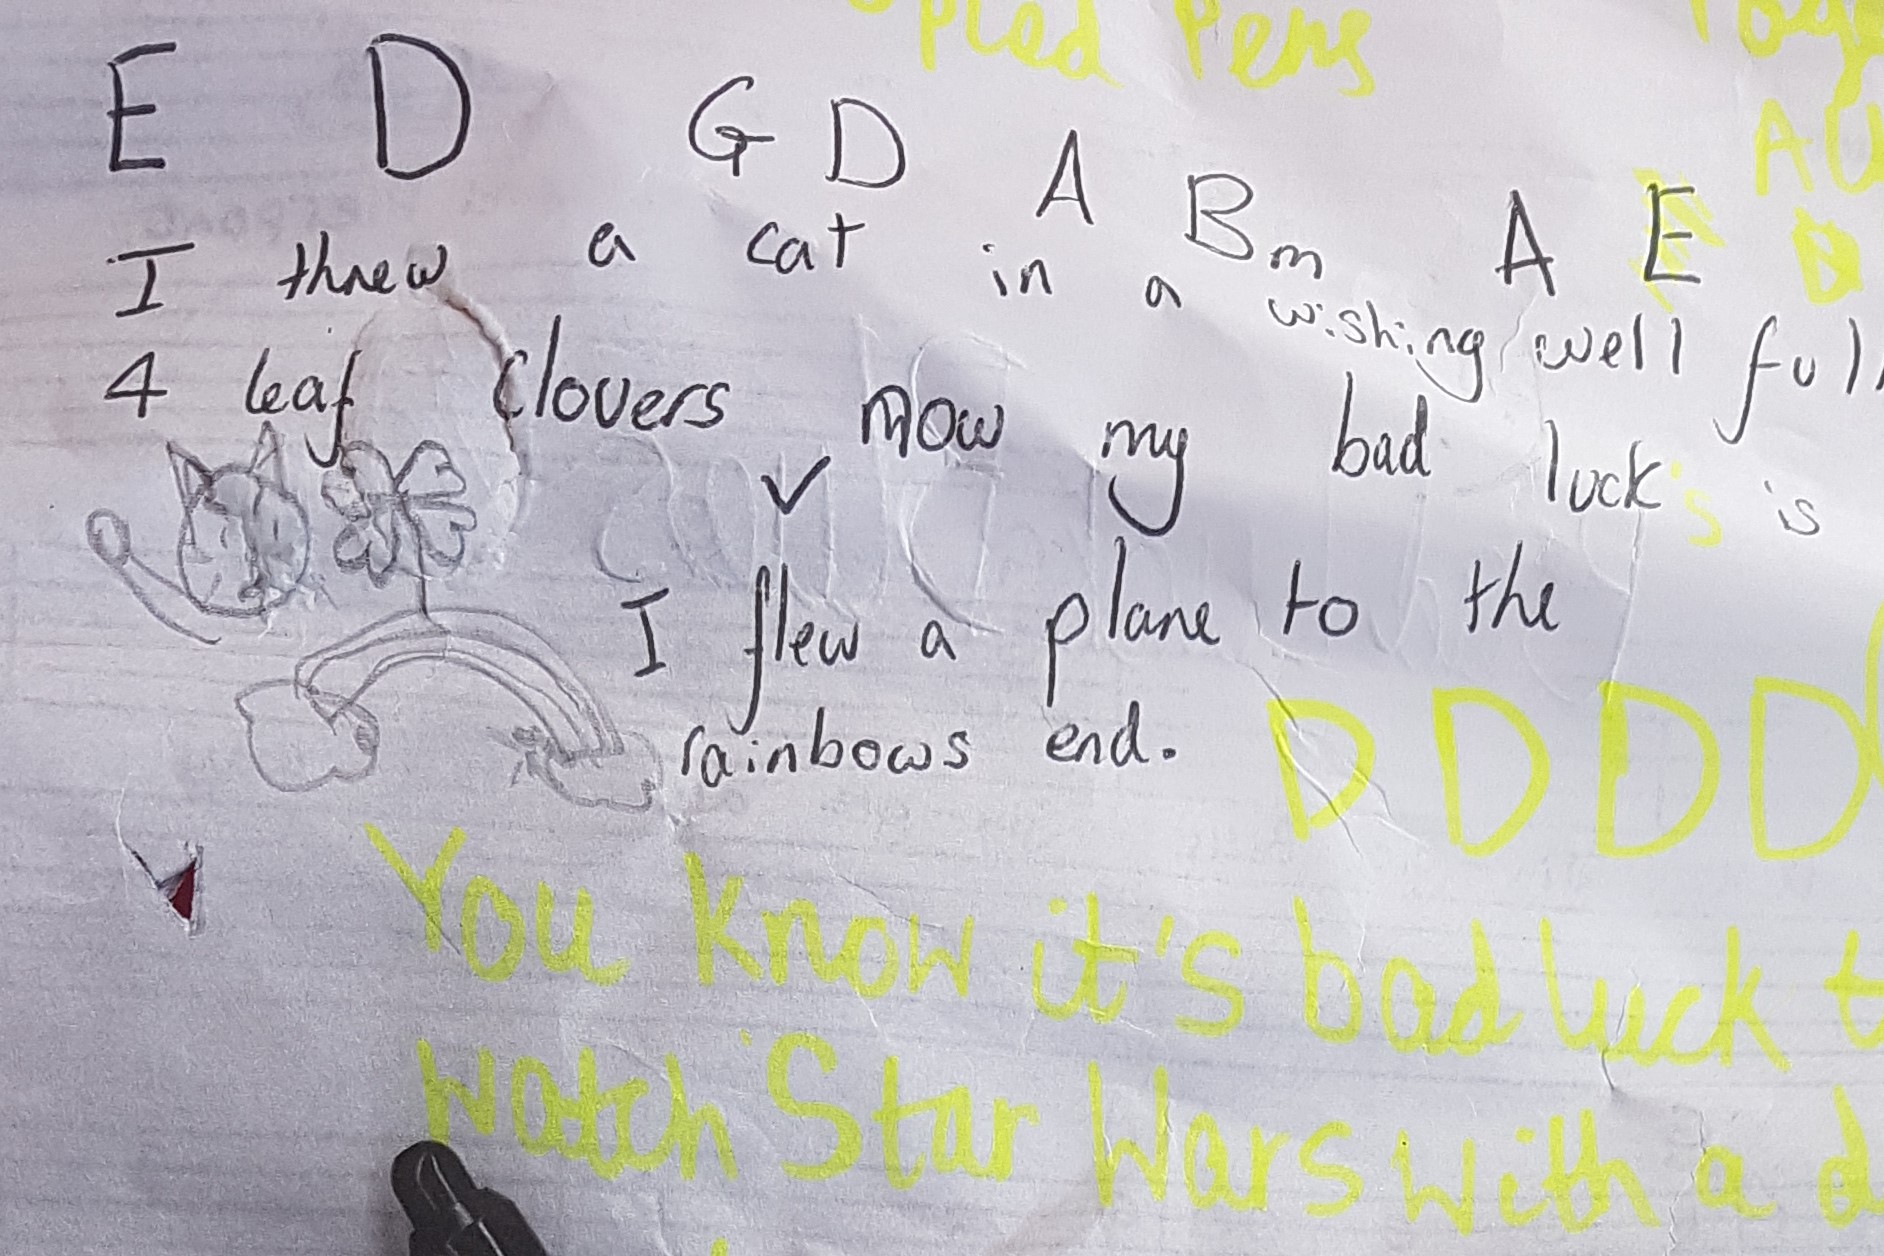 pled Pens
E D G D A Bm A E
I threw a cat in a wishing well full
4 leaf clovers now my bad luck's is
I flew a plane to the
rainbows end.
D D D D
You know it's bad luck t
watch Star Wars with a d